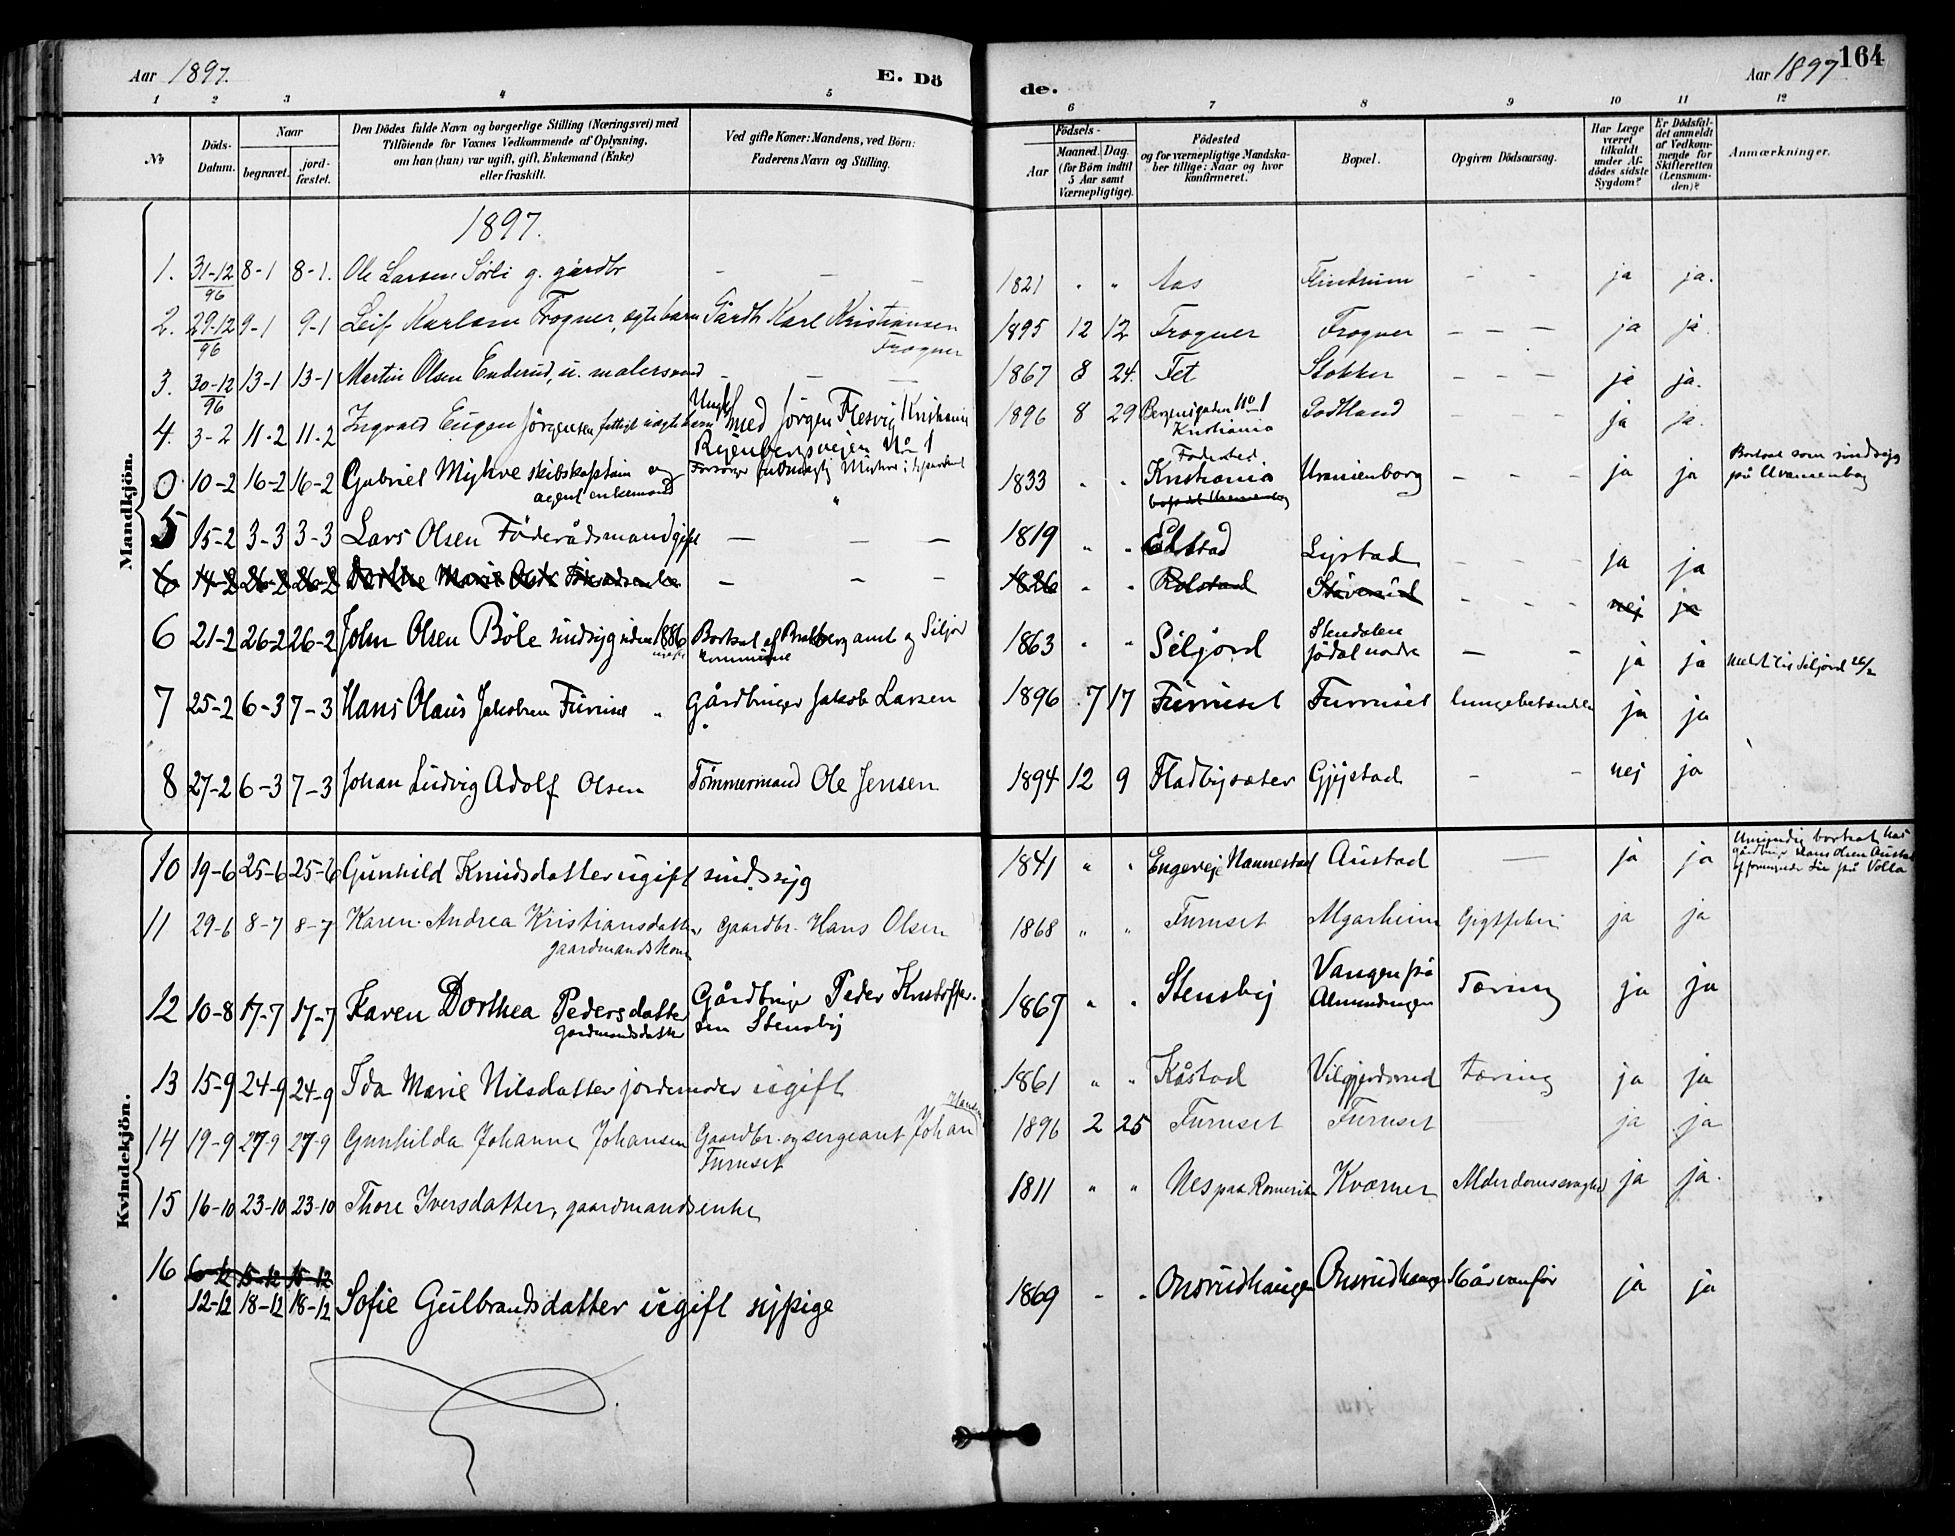 Aar 1897.
E. Dö
de.
Aar 1897
164
1 2 3 4 5
6 7 8 9 10 11 12
No
Döds-
Datum.
Naar
begravet.
jord-
fæstet.
Den Dödes fulde Navn og borgerlige Stilling (Næringsvei) med
Tilföiende for Voxnes Vedkommende af Oplysning,
om han (hun) var ugift, gift, Enkemand (Enke)
eller fraskilt.
Ved gifte Koner: Mandens, ved Börn:
Faderens Navn og Stilling.
Födsels-
Aar
Maaned. Dag.
(for Börn indtil
5 Aar samt
Værnepligtige).
Födested
og for værnepligtige Mandska-
ber tillige: Naar og hvor
konfirmeret.
Bopæl.
Opgiven Dödsaarsag.
Har Læge
været
tilkaldt
under Af-
dödes sidste
Sygdom?
Er Dödsfal-
det anmeldt
af Vedkom-
mende for
Skifteretten
(Lensman-
den)?
Anmærkninger.
Mandkjön.
1897.
1. 31-12 96 8-1 8-1. Ole Larsen Sörli g. gårdbr - - - 1821 " " Aas - - - ja ja.
2. 29-12 96 9-1 9-1 Leif Karlsen Frogner, ægte barn Gårdb Karl Kristiansen Frogner 1895 12 12 Frogner Frogner - - - ja ja.
3. 30-12 96 13-1 13-1 Martin Olsen Enderud, u. malersvend - - - 1867 8 24. Fet Stokker - - - ja ja.
4. 3-2 11-2 11-2 Ingvald Eugen Jörgensen Smed Jörgen Kristiania No 1 1896 8 29 Bergensgaden No 1 Kristiania - - - ja ja.
0 10-2 16-2 16-2 Gabriel Myhre skibskaptain og agent enkemand Forsørger 1833 " " Fødested. Kristiania Uranienborg - - - ja ja Bortsat som sindssyg på Uranienborg
5 15-2 3-3 3-3 Lars Olsen Föderådsmand gift - - - 1819 " " - - - ja ja
6 14-2 26-2 26-2 Dorthe Marie - - - 1826 " " Rolstad - - - nej ja
6 21-2 26-2 26-2 John Olsen Böle sindsyg siden 1886 Bortsat af amt og Siljor kommune 1863 " " Seljord Stendalen - - ja ja meldt til Siljord 26/2
7 25-2 6-3 7-3 Hans Olaus Jakobsen Furuset " Gårdbruger Jakob Larsen 1896 7 17 Furuset Furuset lungebetændelse ja ja
8 27-2 6-3 7-3 Johan Ludvig Adolf Olsen Tömmermand Ole Jensen 1894 12 9 Fladbysæter Gjystad - - nej ja
Kvindekjön.
10 19-6 25-6 25-6 Gunhild Knudsdatter ugift sindssyg 1841 " " Nannestad Austad - ja ja bortsat hos gårdbr Hans Olsen Austad
11 29-6 8-7 8-7 Karen Andrea Kristiansdatter gaardmandskone Gaardbr. Hans Olsen 1868 " " Furuset Algarheim Gigtfeber ja ja
12 10-8 17-7 17-7 Karen Dorthea Pedersdatter gårdmandsdatter Gårdbruger Peder Kristoffersen Stensby 1867 " " Stensby Vangen på Almindingen Tæring ja ja
13 15-9 24-9 24-9 Ida Marie Nilsdatter jordemoder ugift 1861 " " Kåstad Tæring ja ja
14 19-9 27-9 27-9 Gunhilda Johanne Johansen Gaardbr. og sergeant Johan Hansen Furuset 1896 2 25 Furuset Furuset ja ja
15 16-10 23-10 23-10 Thore Iversdatter, gaardmandsenke 1811 " " Nes paa Romerike Kværner Alderdomssvaghed ja ja.
16 6-12 15-12 15-12
12-12 18-12 18-12 Sofie Gulbrandsdatter ugift sypige 1869 " " Onsrudhaugen Onsrudhaugen ja ja